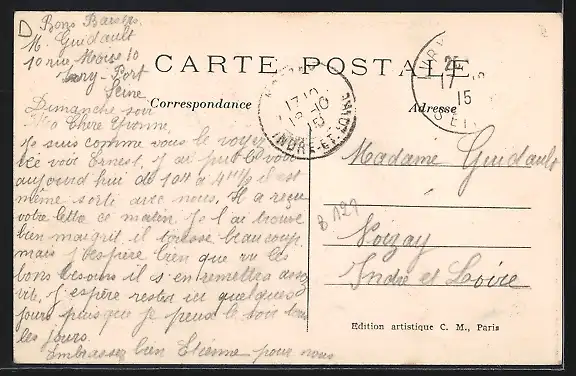 D
Bons Baisers
M. Guidault
10 rue Moïse 10
Ivry-Port
Seine
CARTE POSTALE
Correspondance
Adresse
Dimanche soir
Ma Chère Yvonne
Je suis comme vous le voyez
voir Ernest, j'ai pu le voir
aujourd'hui de 10h à 4h½ il est
même sorti avec nous. Il a reçu
votre lettre ce matin. Je l'ai trouvé
bien maigrit, il tousse beaucoup
mais j'espère bien que vu les
bons besoins il s'en remettra assez
vite, J'espère rester ici quelques
jours puisque je peux le voir tous
les jours.
Embrassez bien Etienne pour nous
Madame Guidault
Noizay
Indre et Loire
B 121
INDRE-ET-LOIRE
17 15
Edition artistique C. M., Paris